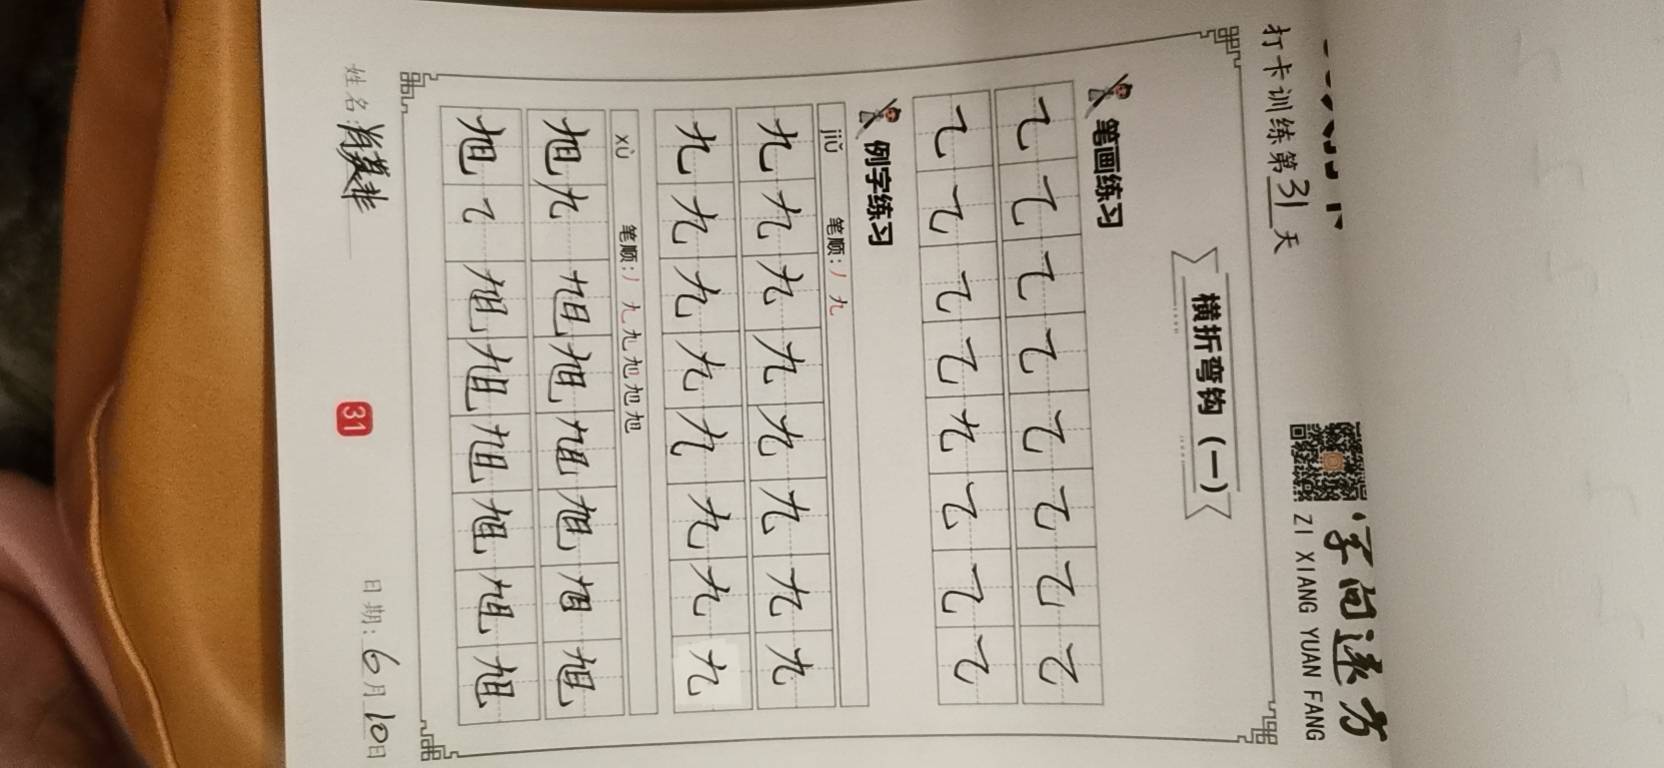 字向远方
ZI XIANG YUAN FANG
打卡训练第31天
横折弯钩(一)
笔画练习
㇈ ㇈ ㇈ ㇈ ㇈ ㇈ ㇈ ㇈
㇈ ㇈ ㇈ ㇈ 九 ㇈ ㇈ ㇈
例字练习
jiǔ 笔顺:丿 九
九 九 九 九 九 九 九 九
九 九 九 九 九 九 九 九
xù 笔顺:丿 九 九 旭 旭 旭
旭 九 旭 旭 旭 旭 旭 旭
旭 ㇈ 旭 旭 旭 旭 旭 旭
姓名: 日期:6月10日
31